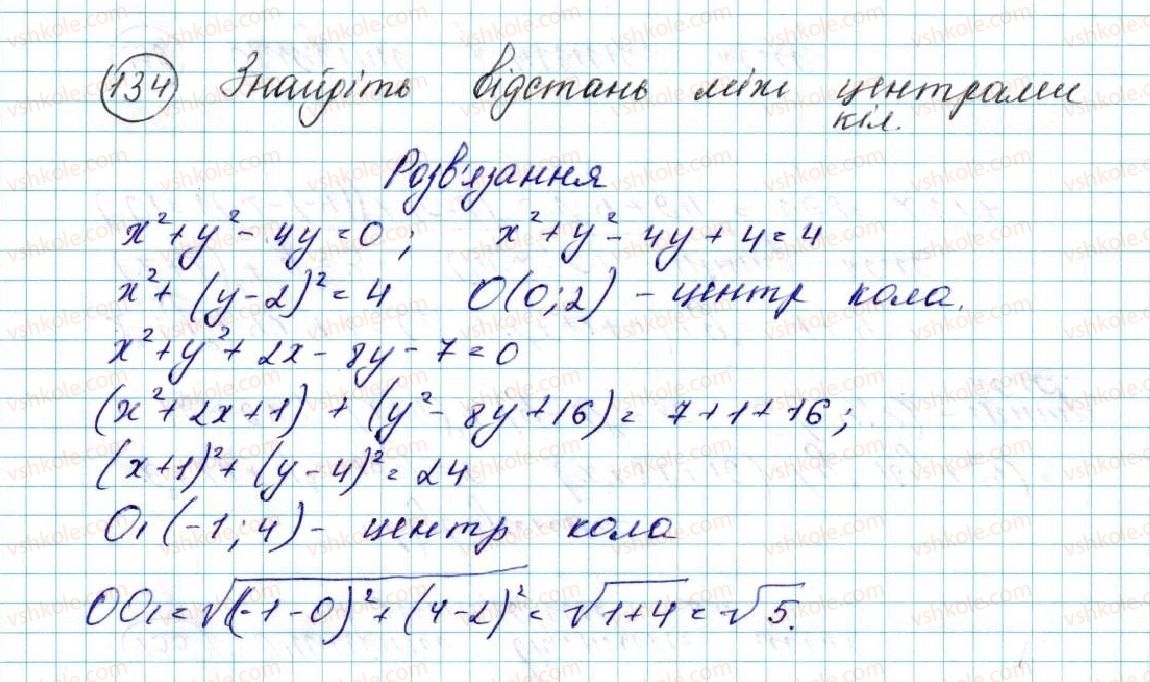 134 Знайдіть відстань між центрами
кіл.
Розв'язання
x²+y²-4y=0; x²+y²-4y+4=4
x²+(y-2)²=4 O(0;2) - центр кола.
x²+y²+2x-8y-7=0
(x²+2x+1)+(y²-8y+16)=7+1+16;
(x+1)²+(y-4)²=24
O₁(-1;4) - центр кола
OO₁=√((-1-0)²+(4-2)²)=√(1+4)=√5.